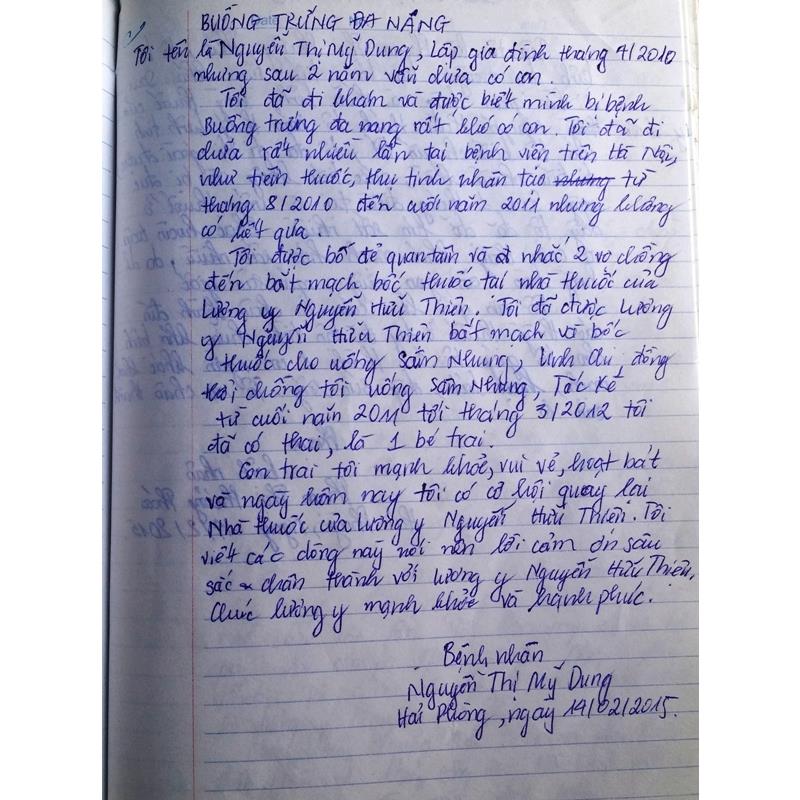 BUỒNG TRỨNG ĐA NĂNG
Tôi tên là Nguyễn Thị Mỹ Dung, Lập gia đình tháng 4/2010
nhưng sau 2 năm vẫn chưa có con.
Tôi đã đi khám và được biết mình bị bệnh
Buồng trứng đa nang rất khó có con. Tôi đã đi
chữa rất nhiều lần tại bệnh viện trên Hà Nội,
như tiêm thuốc, thụ tinh nhân tạo nhưng từ
tháng 8/2010 đến cuối năm 2011 nhưng không
có kết qủa.
Tôi được bố đẻ quan tâm và nhắc 2 vợ chồng
đến bắt mạch bốc thuốc tại nhà thuốc của
Lương y Nguyễn Hữu Thiên. Tôi đã được lương
y Nguyễn Hữu Thiên bắt mạch và bốc
thuốc cho uống Sâm Nhung, Linh Chi, đồng
thời chồng tôi uống Sâm Nhung, Tắc Kè
từ cuối năm 2011 tới tháng 3/2012 tôi
đã có thai, là 1 bé trai.
Con trai tôi mạnh khỏe, vui vẻ, hoạt bát
và ngày hôm nay tôi có cơ hội quay lại
Nhà thuốc của lương y Nguyễn Hữu Thiên. Tôi
viết các dòng này nói nên lời cảm ơn sâu
sắc chân thành với lương y Nguyễn Hữu Thiên,
Chúc lương y mạnh khỏe và hạnh phúc.
Bệnh nhân
Nguyễn Thị Mỹ Dung
Hải Phòng, ngày 14/02/2015.